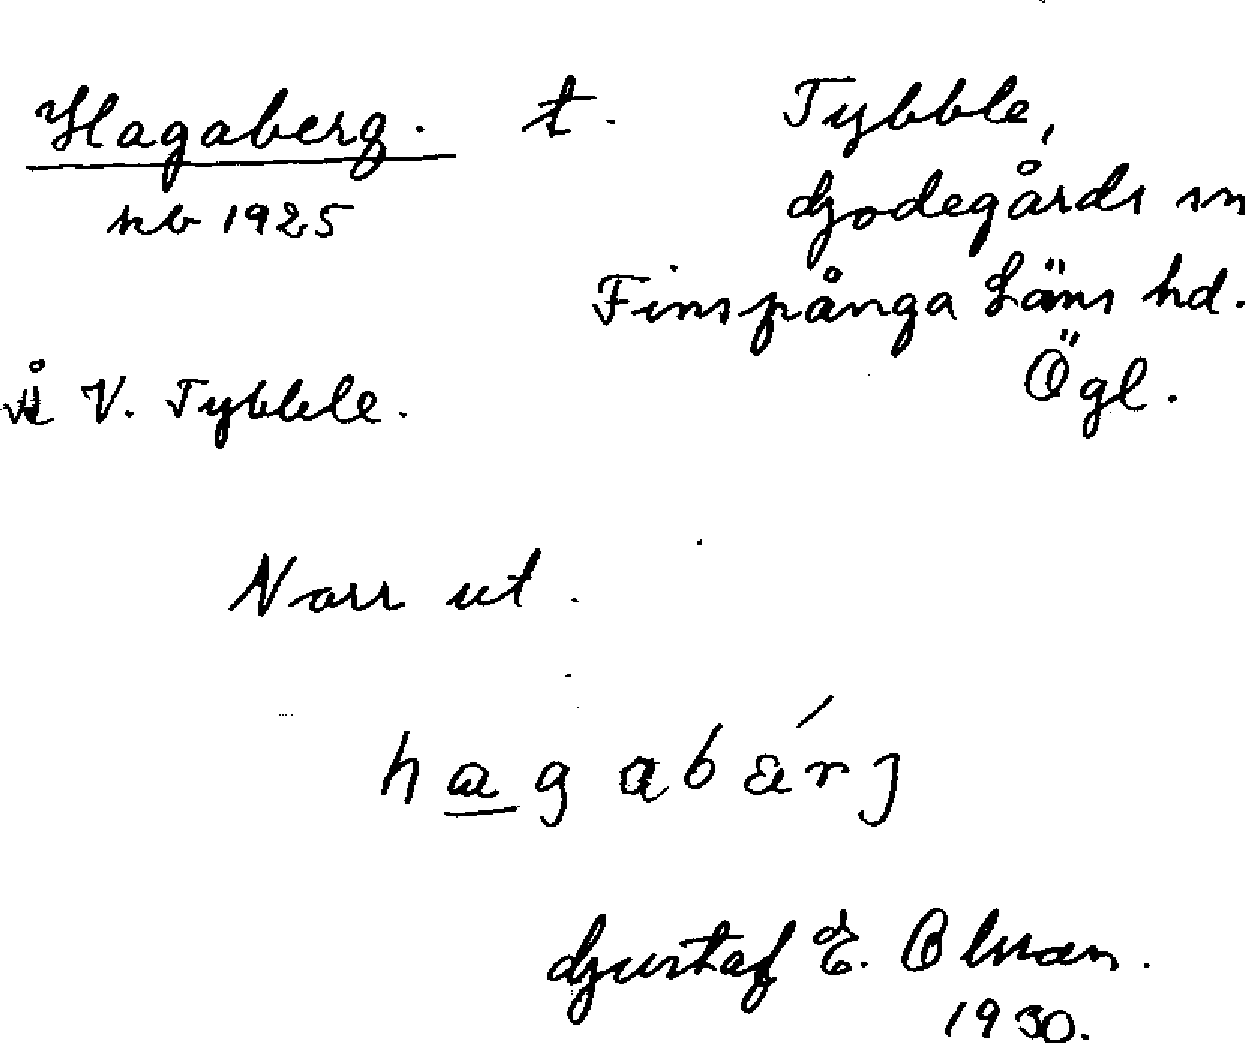 Hagaberg. t. Tybble,
nb 1925 Godegårds sn
Finspånga Läns hd.
Å V. Tybble. Ögl.
Norr ut.
hagabärj
Gustaf E. Olsson.
1930.